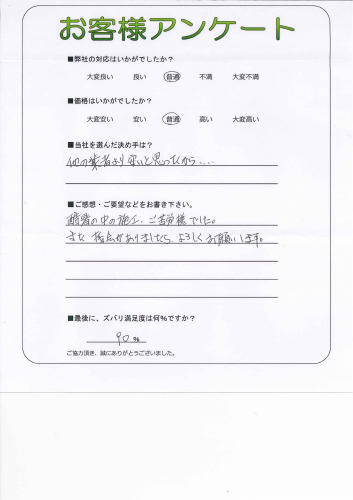 お客様アンケート
■弊社の対応はいかがでしたか？
大変良い 良い 普通 不満 大変不満
■価格はいかがでしたか？
大変安い 安い 普通 高い 大変高い
■当社を選んだ決め手は？
他の業者より安いと思ったから....
■ご感想・ご要望などをお書き下さい。
酷暑の中の施工、ご苦労様でした。
また機会がありましたら、よろしくお願いします。
■最後に、ズバリ満足度は何%ですか？
90 %
ご協力頂き、誠にありがとうございました。